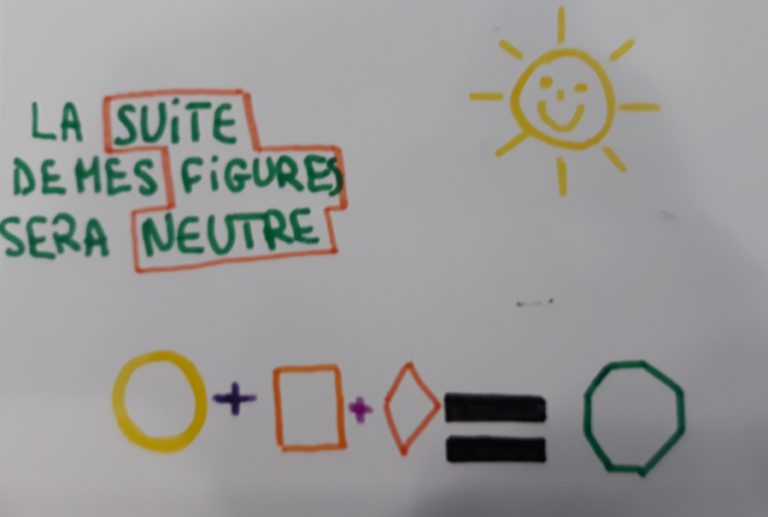 LA SUiTE
DE MES FiGURES
SERA NEUTRE
+ + =